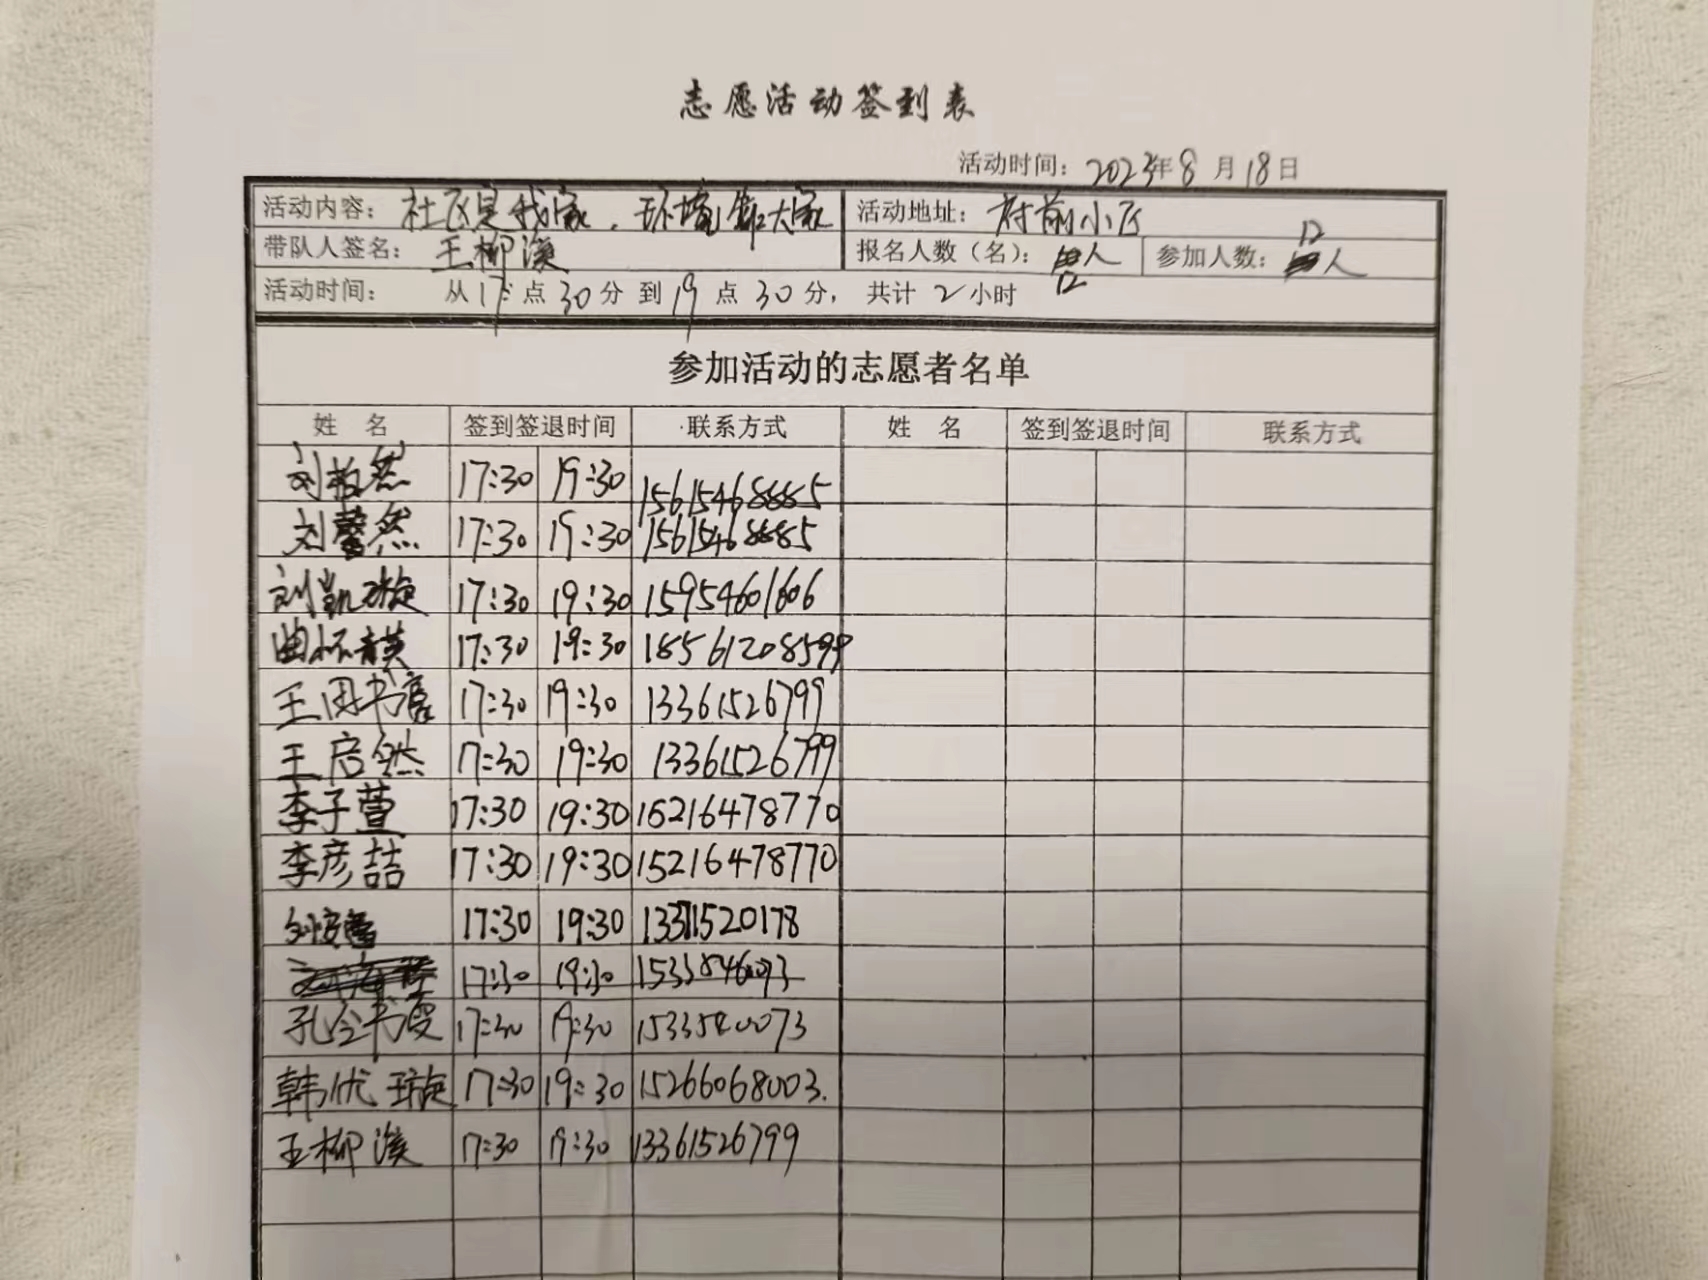 志愿活动签到表
活动时间：2023年8月18日
活动内容：社区是我家，环境靠大家 活动地址：府前小区
带队人签名：王柳溪 报名人数（名）：12人 参加人数：12人
活动时间： 从17点30分到19点30分，共计2小时
参加活动的志愿者名单
姓 名 签到签退时间 联系方式 姓 名 签到签退时间 联系方式
刘柏然 17:30 19:30 15615468885
刘馨然 17:30 19:30 15615468885
刘凯璇 17:30 19:30 15954601606
曲怀 17:30 19:30 18561208599
王田书 17:30 19:30 13361526799
王启然 17:30 19:30 13361526799
李子萱 17:30 19:30 15216478770
李彦喆 17:30 19:30 15216478770
刘 17:30 19:30 13371520178
17:30 19:30
孔令书 17:30 19:30
韩优璇 17:30 19:30 15266068003.
王柳溪 17:30 19:30 13361526799